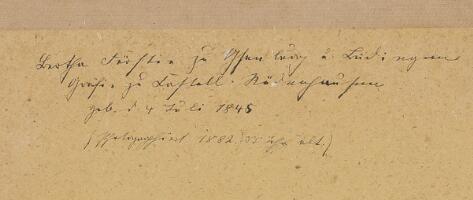 Bertha Fürstin zu Ysenburg u. Büdingen
Gräfin zu Castell-Rüdenhausen
geb. d. 4 Juli 1845
(Photographiert 1882. Jahr alt.)